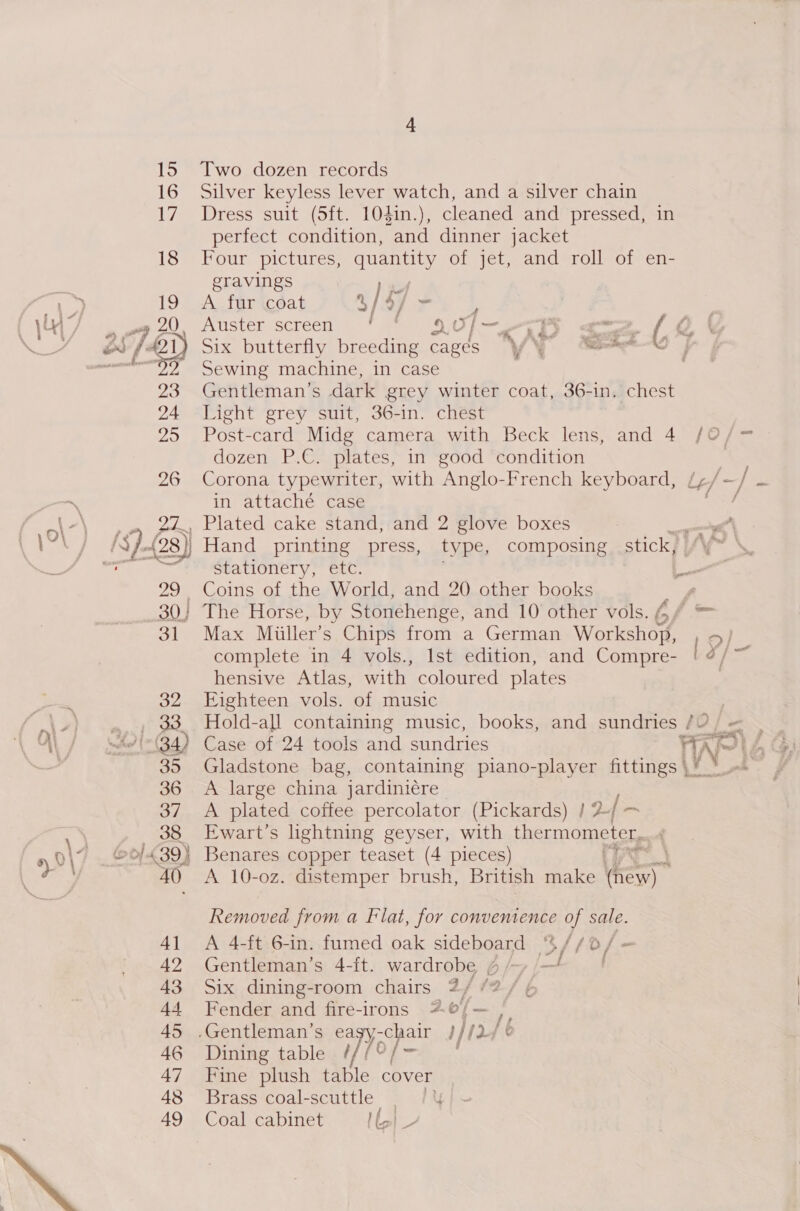 4
15 Two dozen records
16 Silver keyless lever watch, and a silver chain
17 Dress suit (5ft. 10½in.), cleaned and pressed, in
perfect condition, and dinner jacket
18 Four pictures, quantity of jet, and roll of en-
gravings
19 A fur coat
20 Auster screen
21 Six butterfly breeding cages
22 Sewing machine, in case
23 Gentleman's dark grey winter coat, 36-in. chest
24 Light grey suit, 36-in. chest
25 Post-card Midg camera with Beck lens, and 4 10/-
dozen P.C. plates, in good condition
26 Corona typewriter, with Anglo-French keyboard,
in attaché case
27 Plated cake stand, and 2 glove boxes
28 Hand printing press, type, composing stick,
stationery, etc.
29 Coins of the World, and 20 other books
30 The Horse, by Stonehenge, and 10 other vols.
31 Max Müller's Chips from a German Workshop,
complete in 4 vols., 1st edition, and Compre-
hensive Atlas, with coloured plates
32 Eighteen vols. of music
33 Hold-all containing music, books, and sundries 10/-
34 Case of 24 tools and sundries
35 Gladstone bag, containing piano-player fittings
36 A large china jardinière
37 A plated coffee percolator (Pickards) 12/-
38 Ewart's lightning geyser, with thermometer
39 Benares copper teaset (4 pieces)
40 A 10-oz. distemper brush, British make (new)
Removed from a Flat, for convenience of sale.
41 A 4-ft 6-in. fumed oak sideboard 3/10/-
42 Gentleman's 4-ft. wardrobe
43 Six dining-room chairs 2/12/6
44 Fender and fire-irons 20/-
45 Gentleman's easy-chair 1/12/6
46 Dining table 1/10/-
47 Fine plush table cover
48 Brass coal-scuttle
49 Coal cabinet